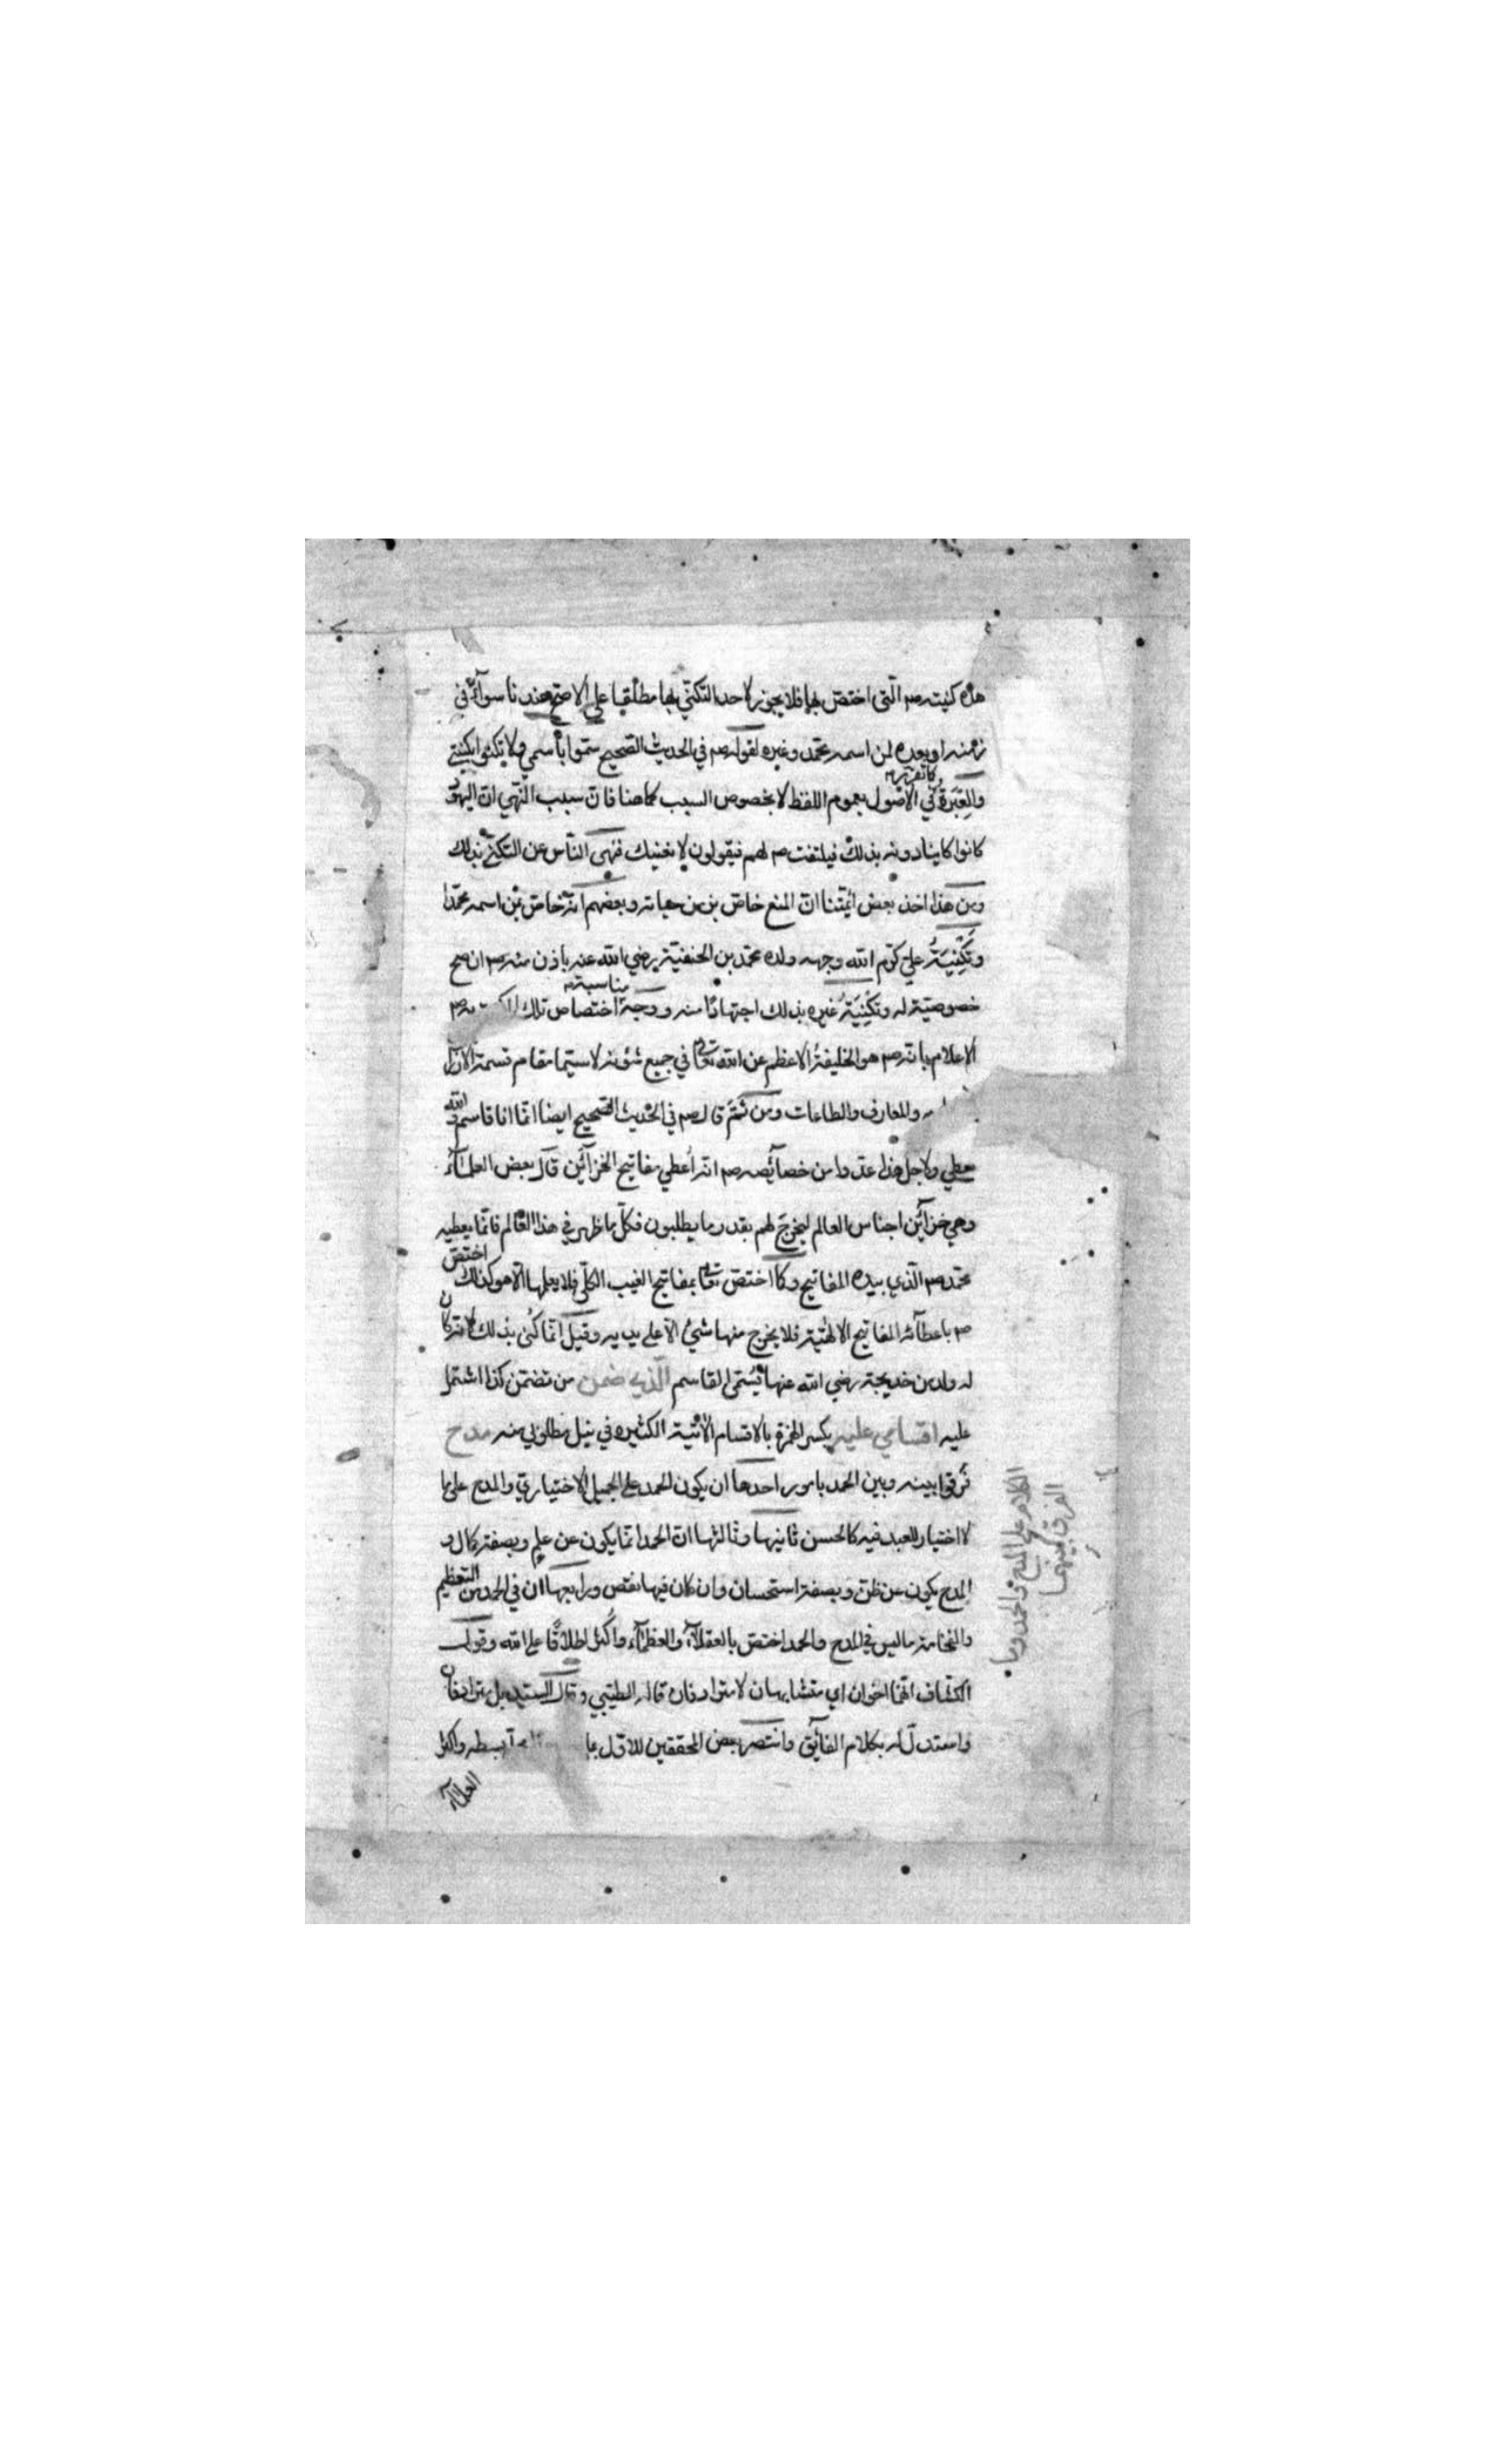 هذه كنيته صم الّتى اختصّ بها فلا يجوز لاحد التكنّي بها مطلقا على الاصحّ عندنا سوآء في
زمنه او بعده لمن اسمه محمّد وغيره لقوله صم في الحديث الصّحيح سمّوا باسمي ولا تكنوا بكنيتي
والعِبَرة في الاصول بعموم اللفظ لا بخصوص السبب كما هنا فانّ سبب النّهي انّ اليهود
كما تقرّر م
كانوا ينادونه بذلك فيلتفت صم لهم فيقولون لا نعنيك فنهى النّاس عن التكنّي بذلك
ومن هذا اخذ بعض ائمّتنا انّ المنع خاصّ بزمن حياته وبعضهم انّه خاصّ بمن اسمه محمّدا
وتَكْنِيَةُ عليّ كرّم الله وجهه ولده محمّد بن الحنفيّة رضي الله عنه باذن منه صم ان صح
خصوصيّة له وتكنِيَةُ غيره بذلك اجتهادًا منه ووجه اختصاص تلك
مناسبة م
الاعلام بانّه صم هو الخليفةُ الاعظم عن الله تعالى في جميع شؤنه لا سيّما مقام قسمة الارزاق
والمعارف والطاعات ومن ثَمَّ قال صم في الحديث الصّحيح ايضا انّما انا قاسم والله
يعطي ولاجل هذا عدّوا من خصآئصه صم انّه اُعطي مفاتيح الخزآئن قال بعض العلمآء
وهي خزآئن اجناس العالم ليخرج لهم بقدر ما يطلبون فكلّ ما ظهر في هذا العالم فانّما يعطيه
محمّد صم الّذي بيده المفاتيح وكما اختصّ تعالى بمفاتيح الغيب الكلّي فلا يعلمها الّا هو كذلك اختصّ
صم باعطآئه المفاتيح الالهيّة فلا يخرج منها شيئ الّا على يديه وقيل انّما كُنى بذلك لانّه كان
له ولد من خديجة رضي الله عنها يُسَمّى القاسم الّذي ضمن من تضمّن كذا اشتمل
عليه اقسامي عليه بكسر الهمزة بالاقسام الآتية الكثيره في نيل مطلوبي منه مدح
فرّقوا بينه وبين الحمد بامور احدها ان يكون الحمد على الجميل الاختياري والمدح على ما
لا اختيار للعبد فيه كالحسن ثانيها وثالثها انّ الحمد انّما يكون عن علم وبصفة كمال و
المدح يكون عن ظنّ وبصفة استحسان وان كان فيها نقص ورابعها ان في الحمد من التعظيم
والفخامة ما ليس في المدح والحمد اختصّ بالعقلآء والعظمآء واكثر اطلاقًا على الله وقول
الكشّاف انّهما اخوان اي متشابهان لا مترادفان قاله الطيّبي وقال السيّد بل مترادفان
واستدلّ له بكلام الفآئق وانتصر بعض المحققين للاوّل بما بسطه واكثر
العلمآء
الكلام على المدح والحمد وما
الفرق بينهما